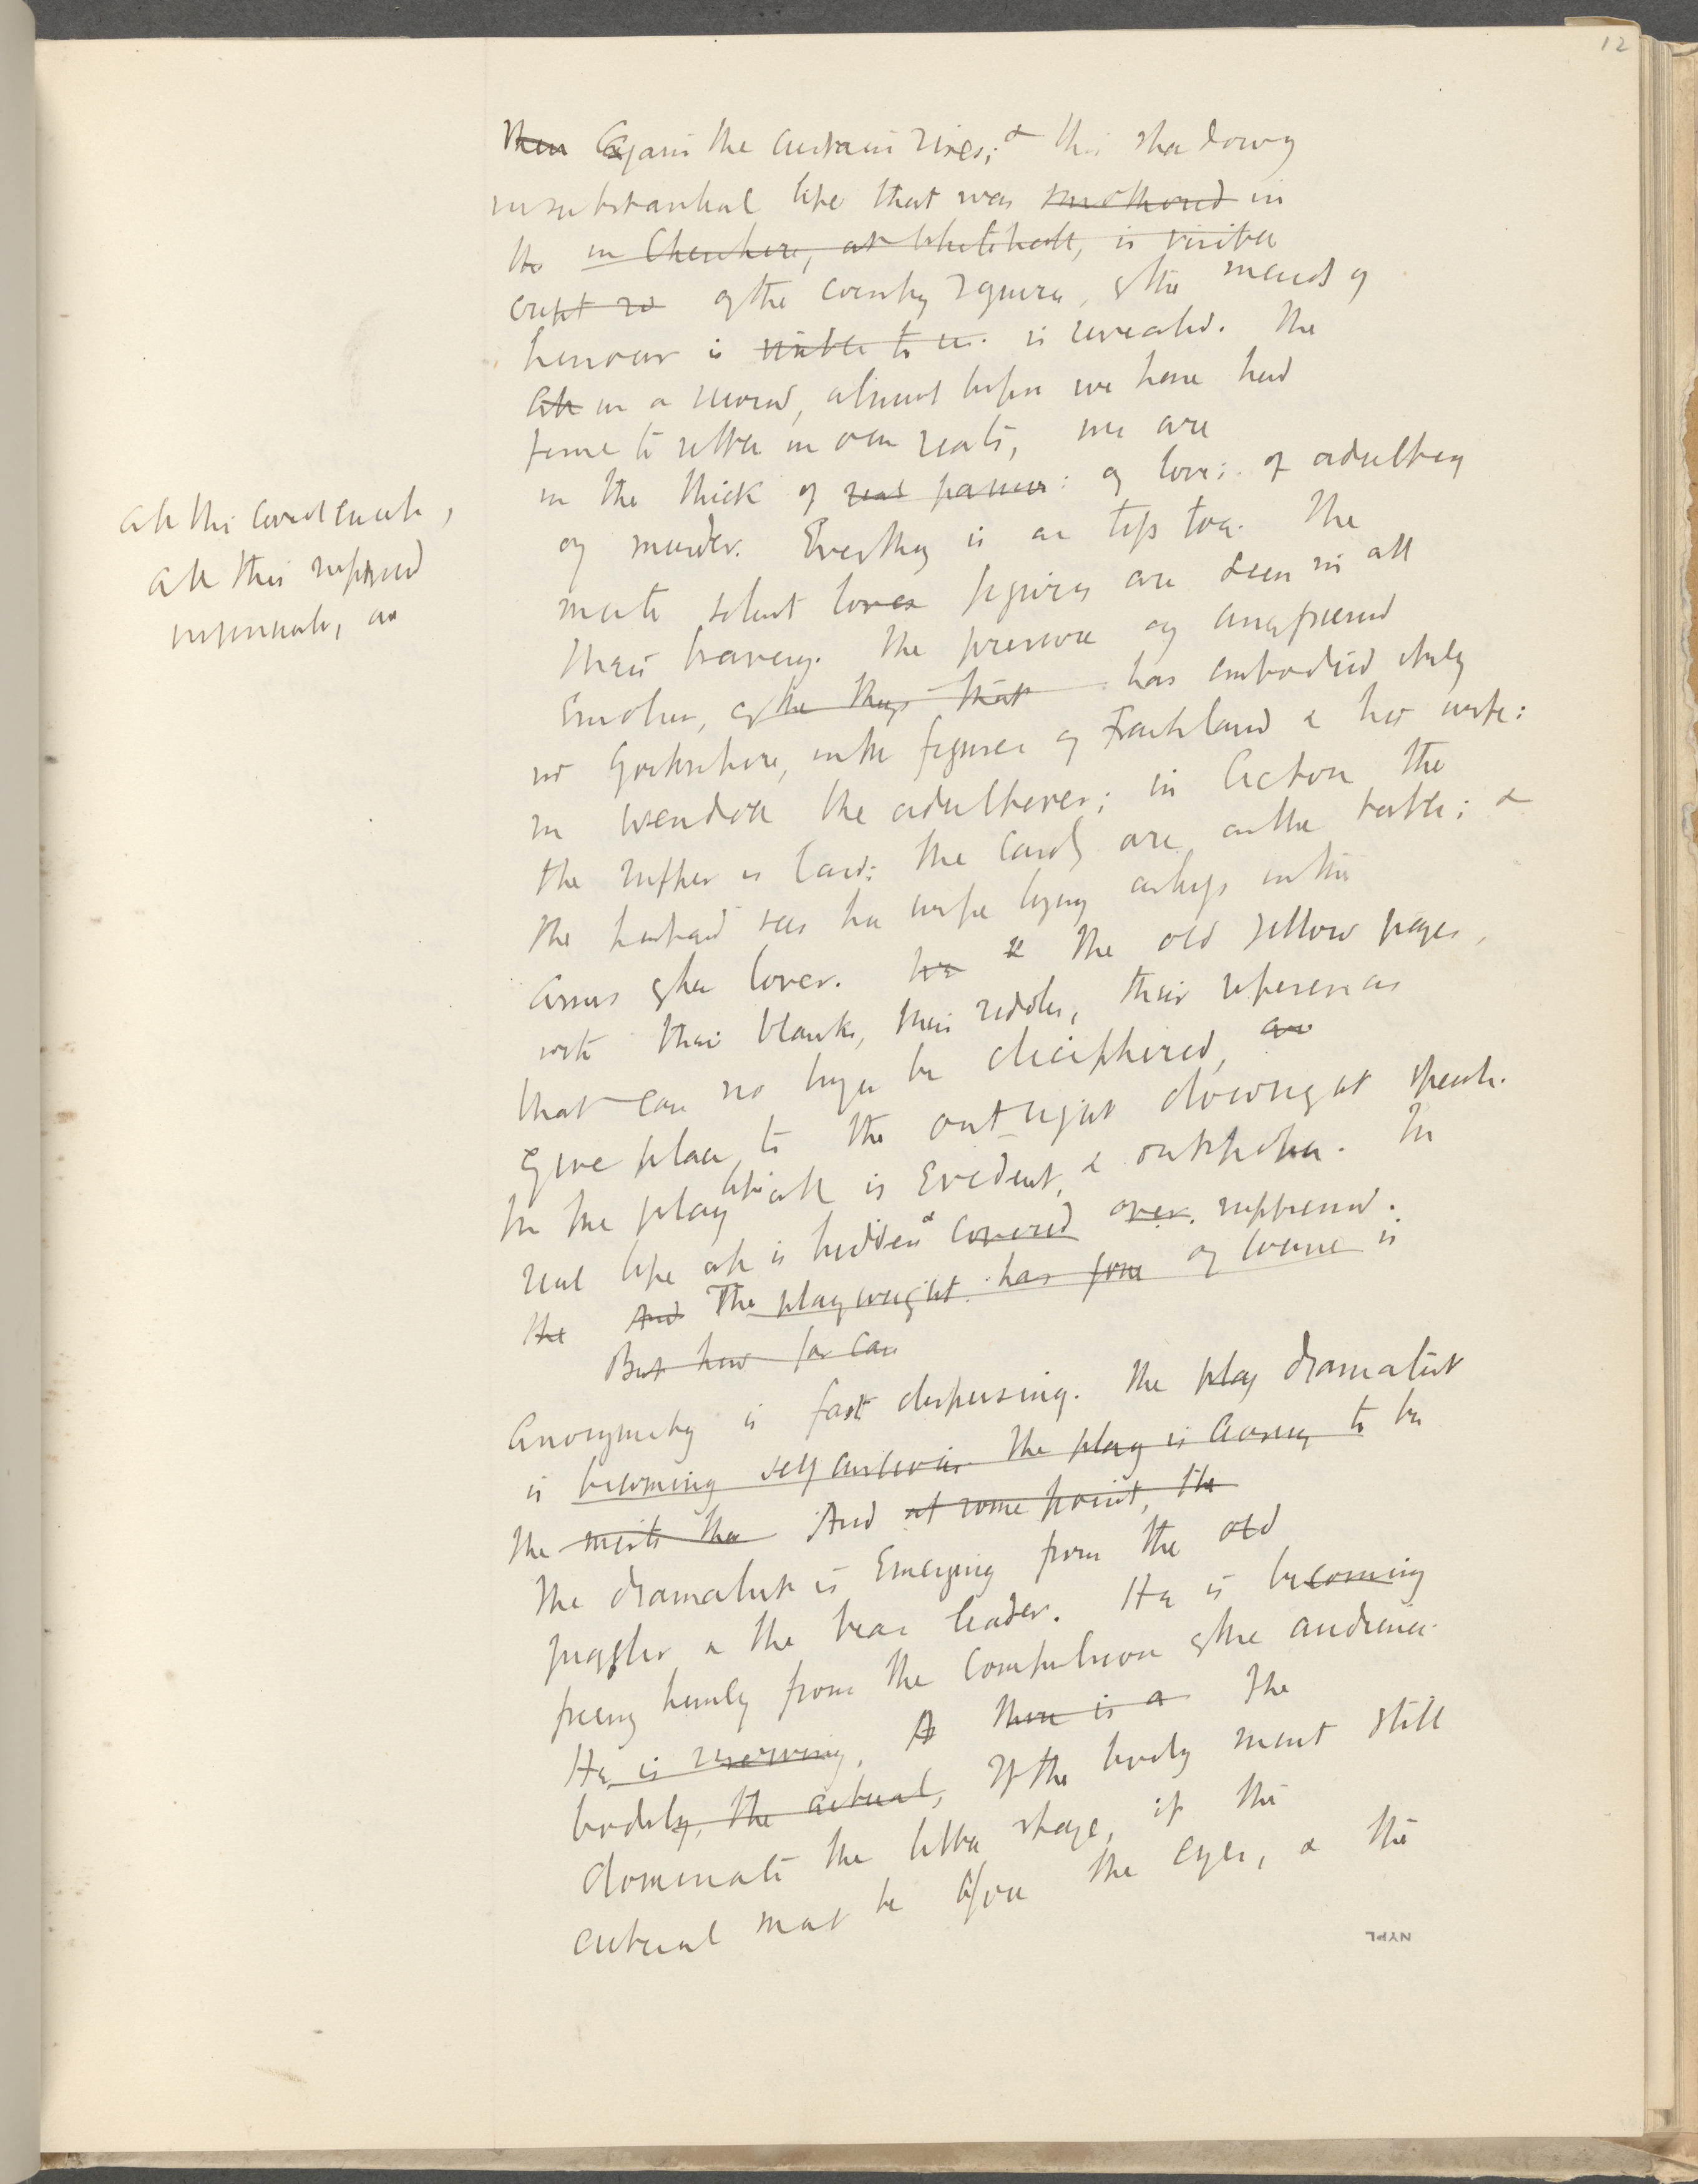 12
Then Again the curtain rises; & this shadowy
unsubstantial life that was smothered in
the in Cheshire, at Whitehall, is visible
of the country squire, of the maids of
honour is visible to us. is revealed. The
All in a second, almost before we have had
time to settle in our seats, we are
in the thick of real passion: of love; of adultery
of murder. Everthing is on tip toe. The
mute silent lover figures are seen in all
their bravery. The pressure of unexpressed
Emotion, of the things that has embodied itself
in Yorkshire, in the figures of Frankland & his wife:
in Wendoll the adulterer; in Acton the
the supper is laid; the cards are on the table; &
the husband sees his wife lying asleep in the
arms of her lover. the old yellow pages,
with their blanks, their riddles, their references
that can no longer be deciphered, are
give place to the outright downright speech.
In the play life all is Evident, & outspoken. In
real life all is hidden & covered over. suppressed.
the And The playwright has gone of course is
But how far can
Anonymity is fast dispersing. The play dramatist
is becoming self conscious The play is ceasing to be
the And at some point, the
The dramatist is Emerging from the old
juggler & the bear leader. He is becoming
freeing himself from the compulsion of the audience.
He is A There is a The
bodily, the actual, If the body must still
dominate the little stage, if the
actual must be before the eyes, & the
All this
all this suppressed
NYPL